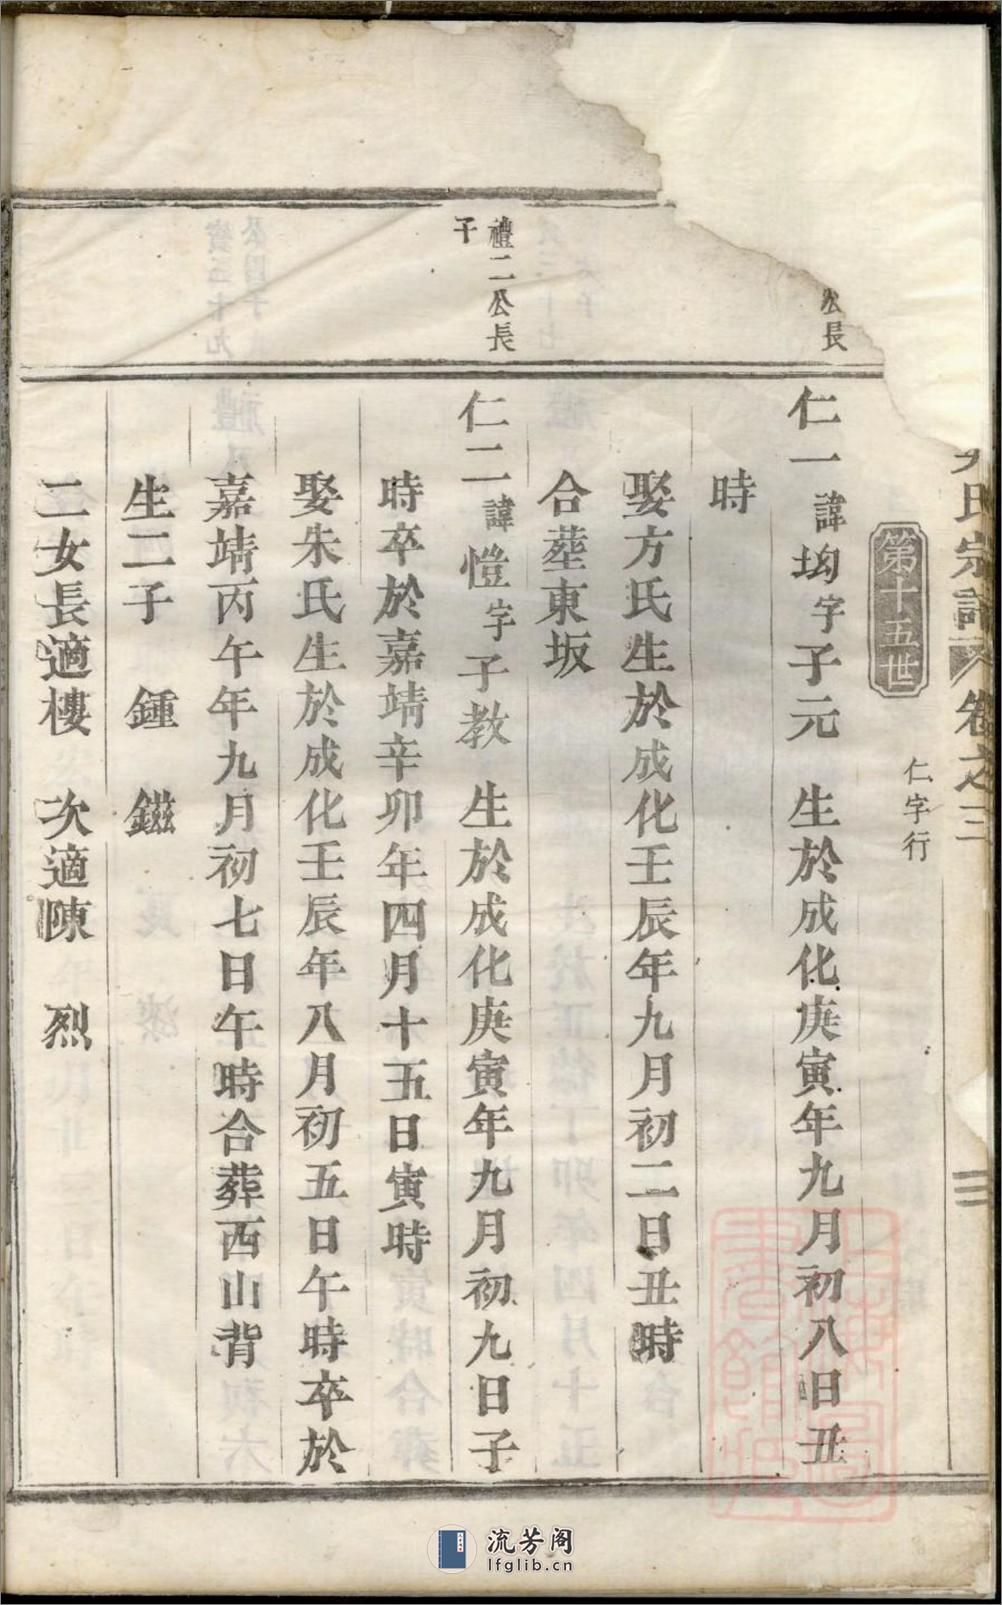 氏宗譜 卷之三
第十五世
仁字行
公長
仁一諱坳字子元 生於成化庚寅年九月初八日丑
時
娶方氏生於成化壬辰年九月初二日丑時
合塟東坂
禮二公長
子
仁二諱愷字子教 生於成化庚寅年九月初九日子
時卒於嘉靖辛卯年四月十五日寅時
娶朱氏生於成化壬辰年八月初五日午時卒於
嘉靖丙午年九月初七日午時合葬西山背
生二子 鍾 鎡
二女長適樓 次適陳 烈
流芳阁
lfglib.cn